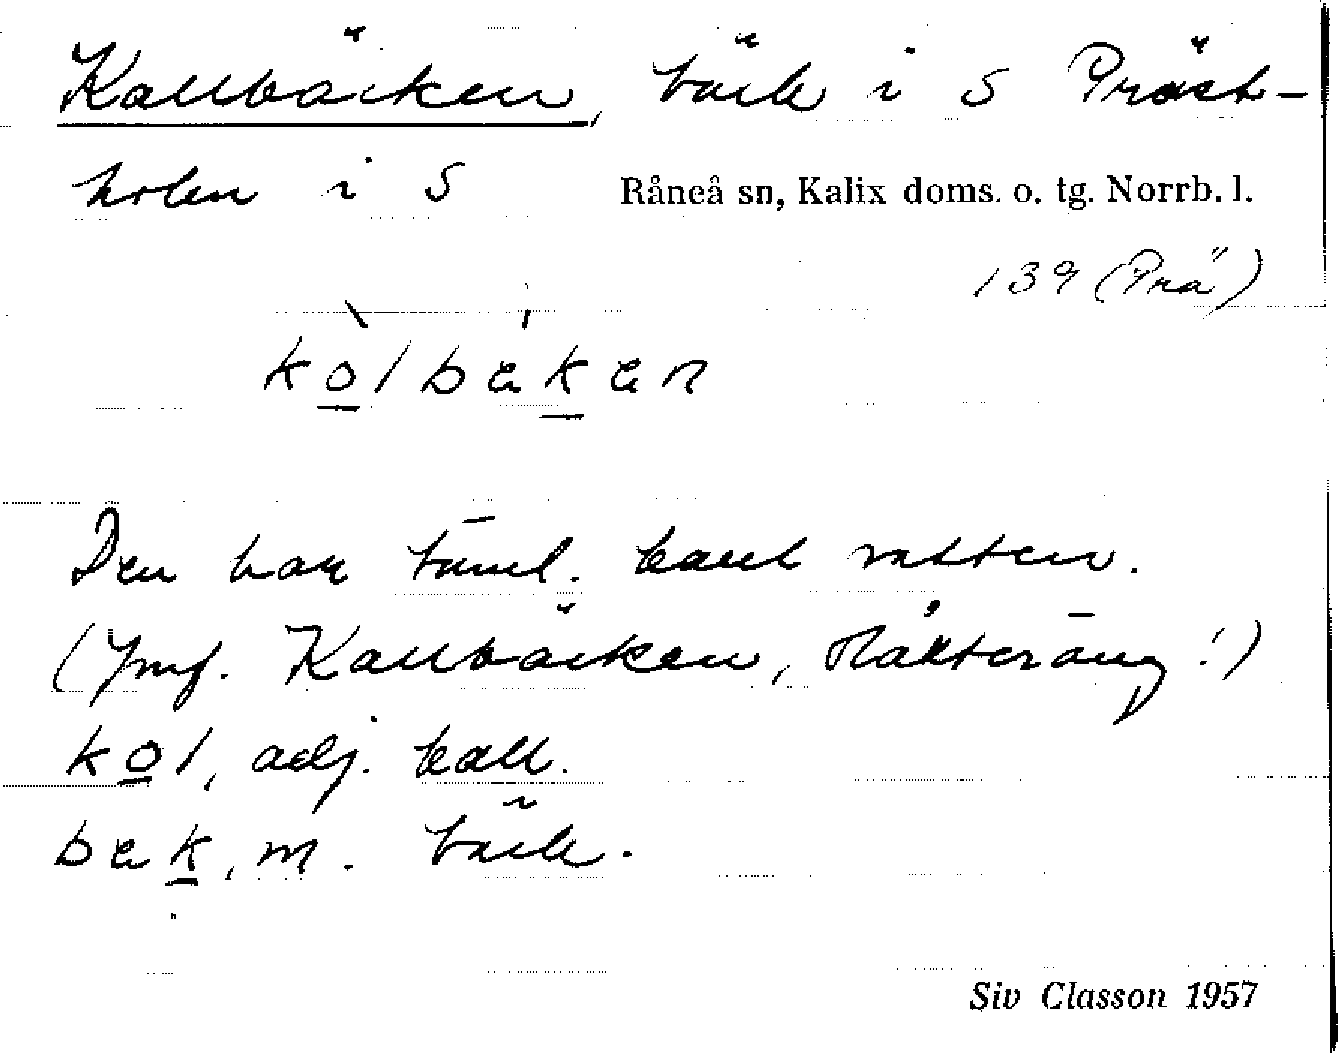 Kallbäcken, bäck i S Präst-
holm i S Råneå sn, Kalix doms. o. tg. Norrb. l.
139 (Prä)
kolbäkän
Den har täml. kallt vatten.
(Jmf. Kallbäcken, Råkteräng!)
kol, adj. kall.
bäk, m. bäck.
Siv Classon 1957